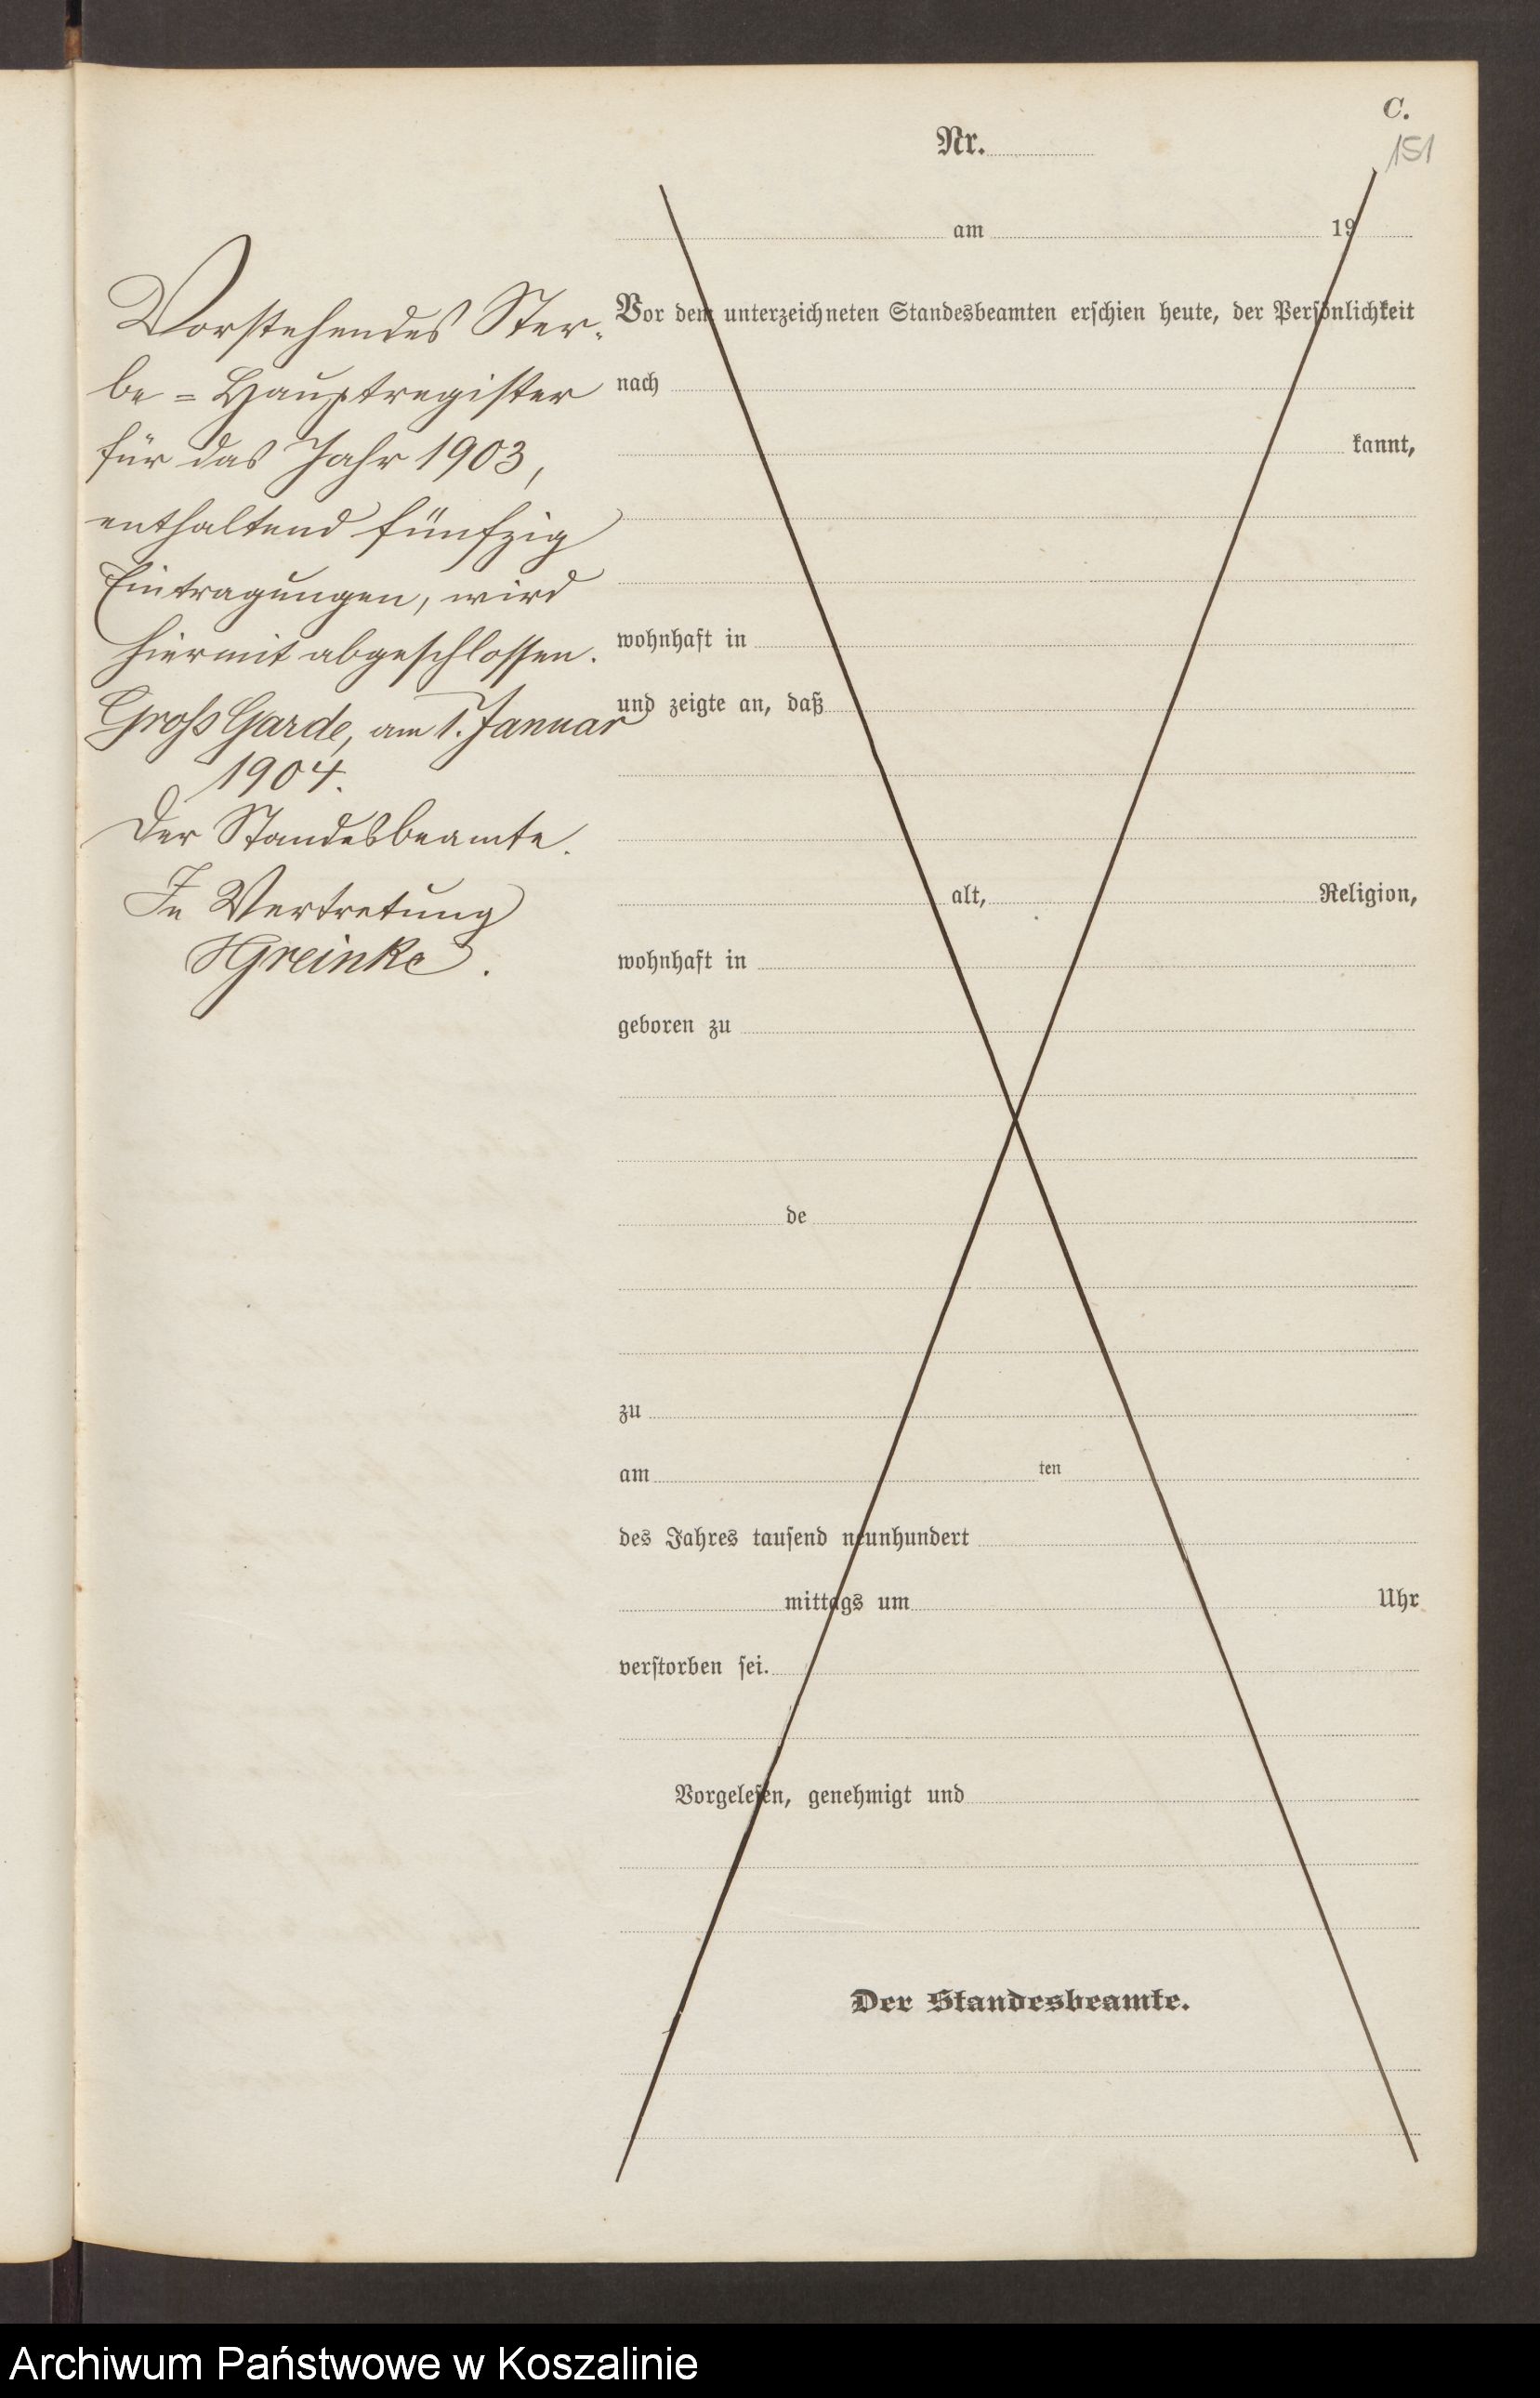 C.
151
Nr.
am 19
Vorstehendes Ster-
be = Hauptregister
für das Jahr 1903,
enthaltend fünfzig
Eintragungen, wird
hiermit abgeschlossen.
Gross Garde, am 1. Januar
1904.
Der Standesbeamte.
In Vertretung
HGreinke.
Vor dem unterzeichneten Standesbeamten erschien heute, der Persönlichkeit
nach
kannt,
wohnhaft in
und zeigte an, daß
alt, Religion,
wohnhaft in
geboren zu
de
zu
am ten
des Jahres tausend neunhundert
mittags um Uhr
verstorben sei.
Vorgelesen, genehmigt und
Der Standesbeamte.
Archiwum Państwowe w Koszalinie